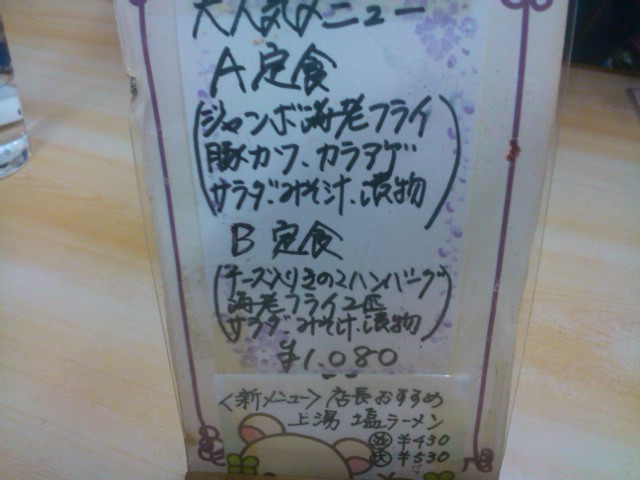 大人気メニュー
A定食
(ジャンボ海老フライ
豚カツ、カラアゲ
サラダ、みそ汁、漬物)
B定食
(チーズ入りきのこハンバーグ
海老フライ2匹
サラダ、みそ汁、漬物)
¥1,080
<新メニュー>店長おすすめ
上湯 塩ラーメン
¥430
大 ¥530